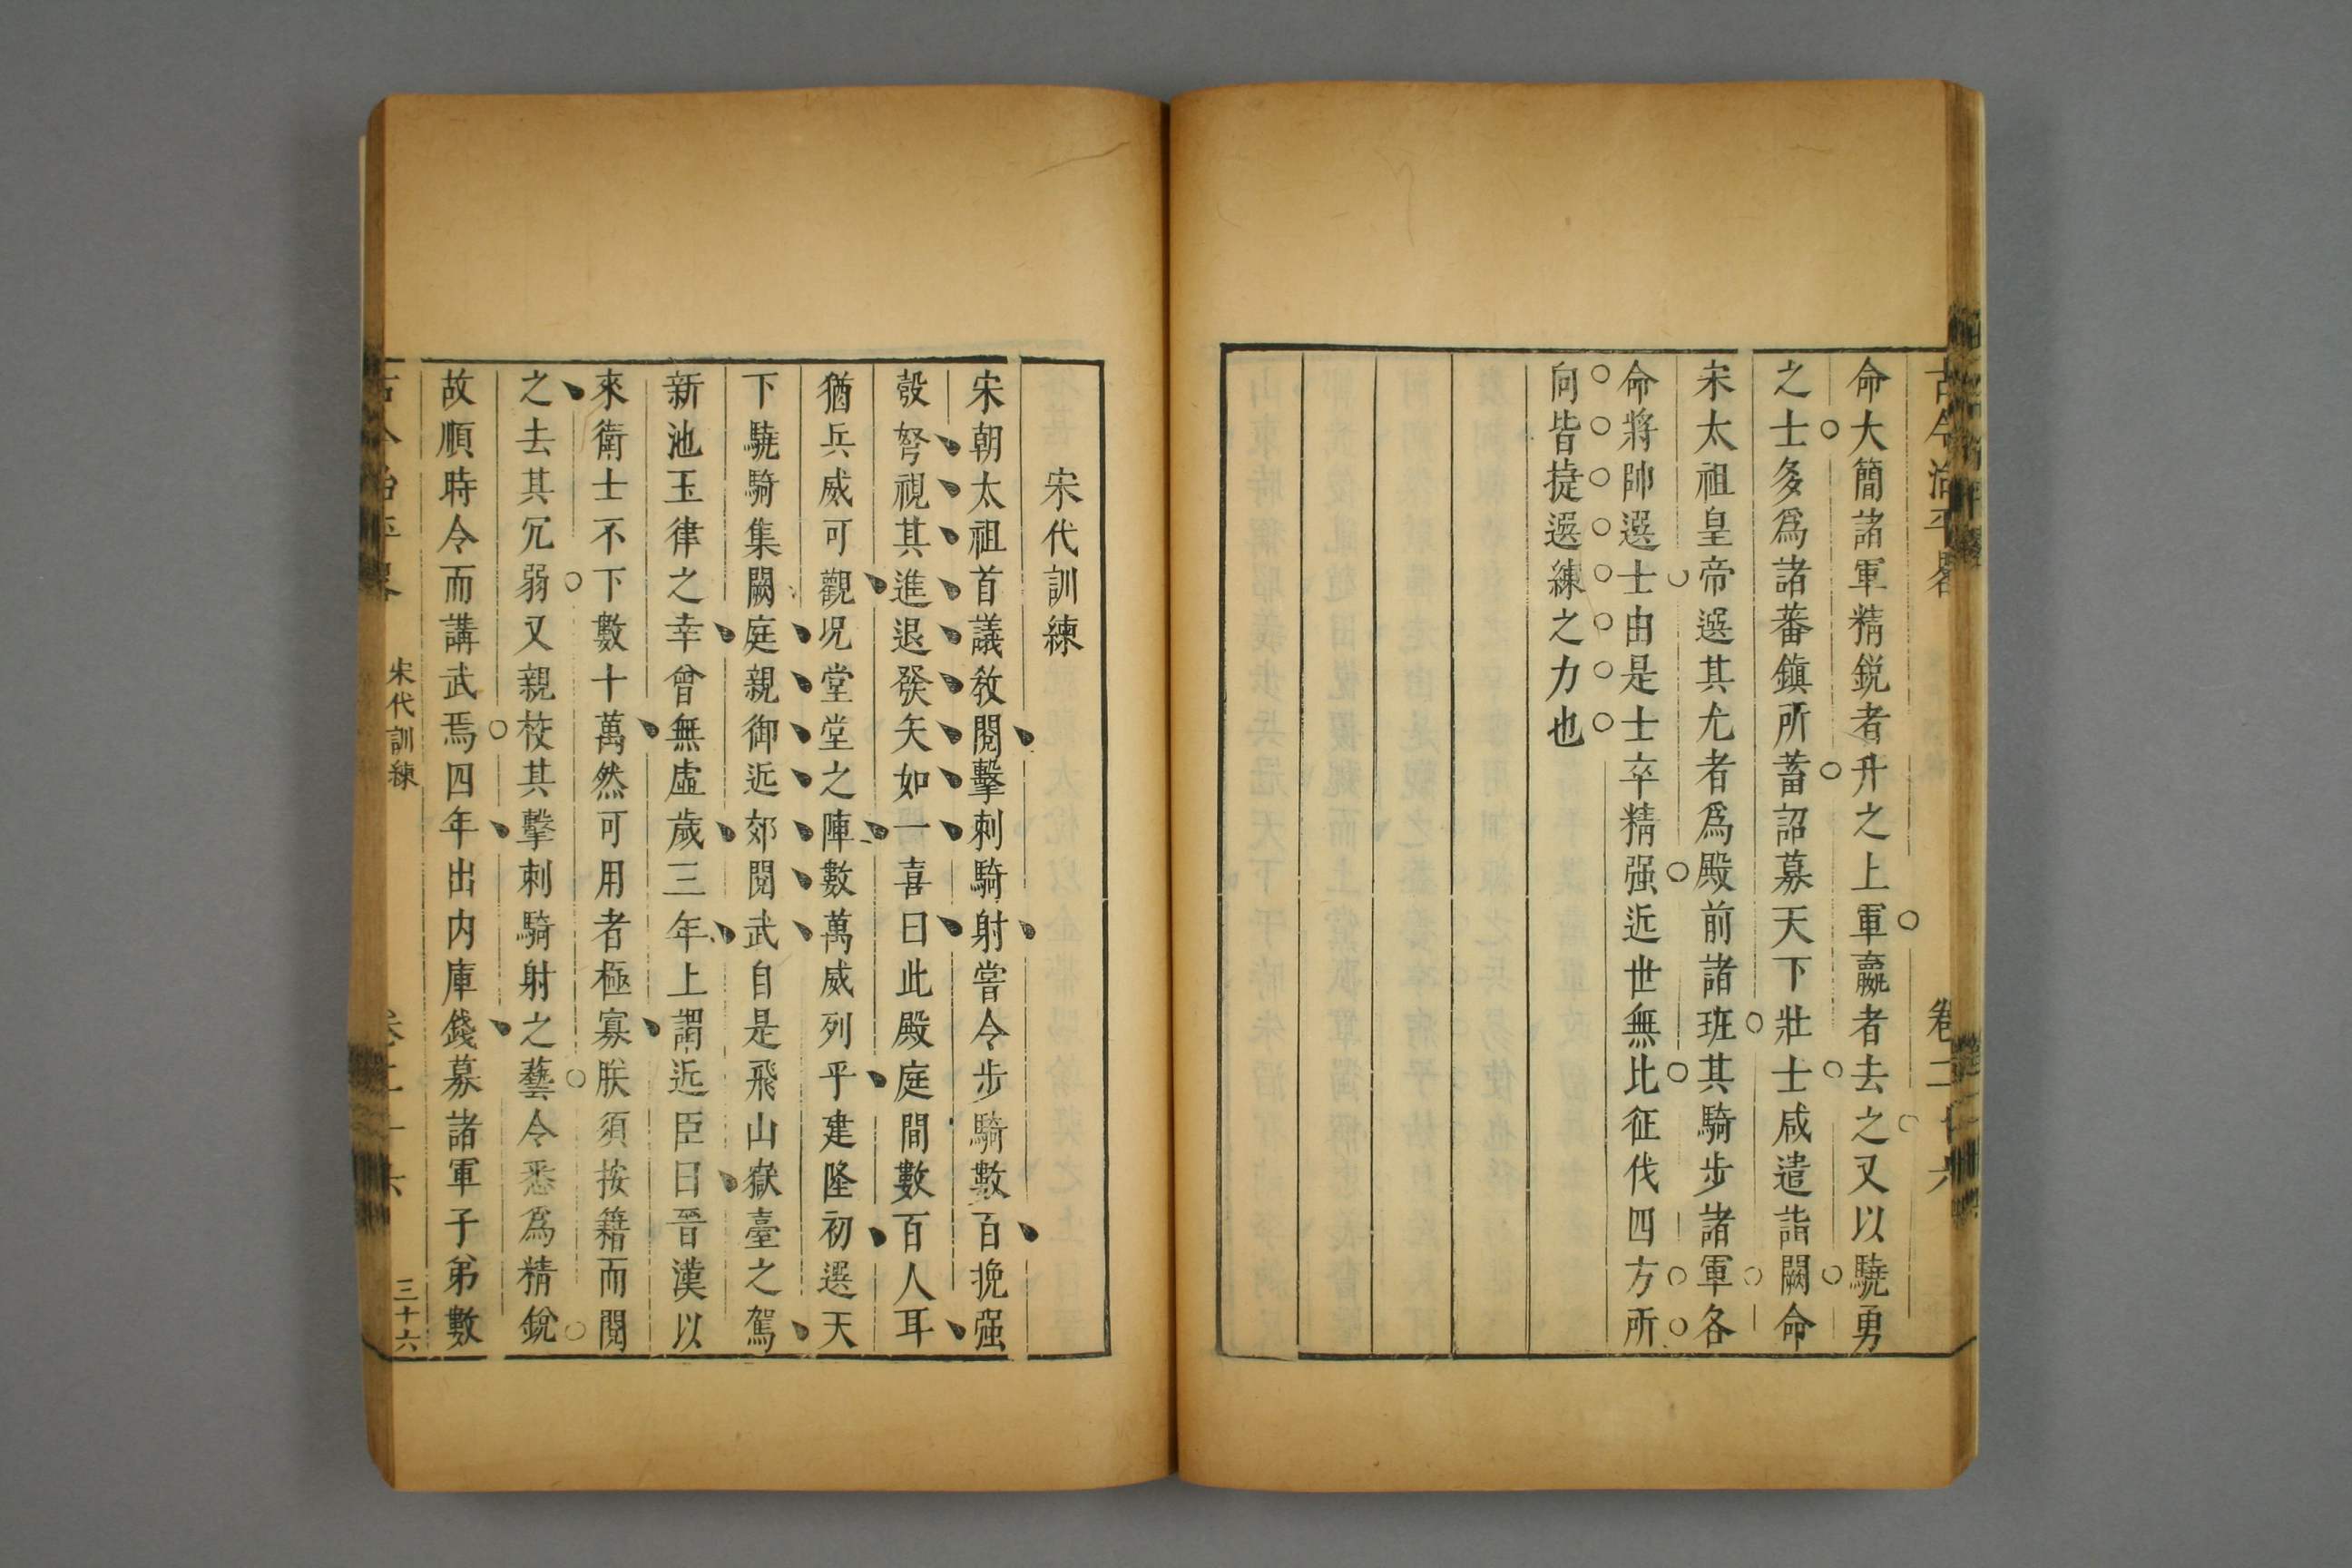 古今治平畧 卷二十六
命大簡諸軍精銳者升之上軍羸者去之又以驍勇
之士多爲諸蕃鎭所蓄詔募天下壯士咸遣詣闕命
宋太祖皇帝選其尤者爲殿前諸班其騎步諸軍各
命將帥選士由是士卒精强近世無比征伐四方所
向皆捷選練之力也
宋代訓練
宋朝太祖首議敎閱擊刺騎射嘗令步騎數百挽强
彀弩視其進退發矢如一喜曰此殿庭間數百人耳
猶兵威可觀况堂堂之陣數萬威列乎建隆初選天
下驍騎集闕庭親御近郊閱武自是飛山嶽臺之駕
新池玉律之幸曾無虛歲三年上謂近臣曰晉漢以
來衛士不下數十萬然可用者極寡朕須按籍而閱
之去其冗弱又親校其擊刺騎射之藝令悉爲精銳
故順時令而講武焉四年出内庫錢募諸軍子弟數
古今治平畧 宋代訓練 卷二十六 三十六